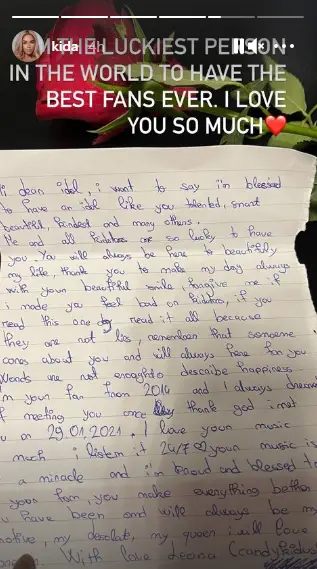 kida 4h
I'M THE LUCKIEST PERSON
IN THE WORLD TO HAVE THE
BEST FANS EVER. I LOVE
YOU SO MUCH❤️
Hi dear idol, i want to say i'm blessed
to have an idol like you talented, smart
beautiful, kindest and many others.
Me and all are so lucky to have
you. You will always be here to beautifuly
my life, thank you to make my day always
with your beautiful smile, forgive me if
i made you feel bad or, if you
read this one day read it all because
they are not lies, remember that someone
cares about you and will always here for you
Words are not enoght to describe happiness
I'm your fan from 2016 and i always dreamed
of meeting you once thank god i met
you on 29.01.2021. I love your music
much i listen it 24/7 ♡ your music is
a miracle and i'm proud and blessed to
your fan, you make everything better
you have been and will always be my
motive, my, my queen i will love
With love Leona (candykidas